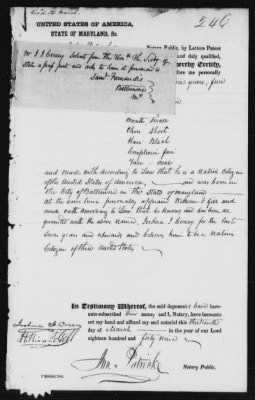 246
UNITED STATES OF AMERICA,
STATE OF MARYLAND, Sc.
Notary Public, by Letters Patent
and duly qualified,
hereby Certify,
before me personally
years,
Mr. I. J. Creery Solicits from the Hon. the Secty of
State a pass port and asks to have it forwarded to
Saml. Fernandis
Baltimore
Md.
Mouth Small
Chin Short
Hair Black
Complexion fair
Face oval
and made oath according to Law that he is a Native Citizen
of the United States of America, and was born in
the City of Baltimore in the State of Maryland
at the same time personally appeared William
and
made oath According to Law that he knows and has been ac-
quainted with the above named, Joshua I. Creery for the last
years and upwards and believes him to be a Native
Citizen of these United States
In Testimony Whereof, the said deponents have
hereunto subscribed names, and I, Notary, have hereunto
set my hand and affixed my seal notarial this thirteenth
day of March in the year of our Lord
eighteen hundred and forty nine
Notary Public.